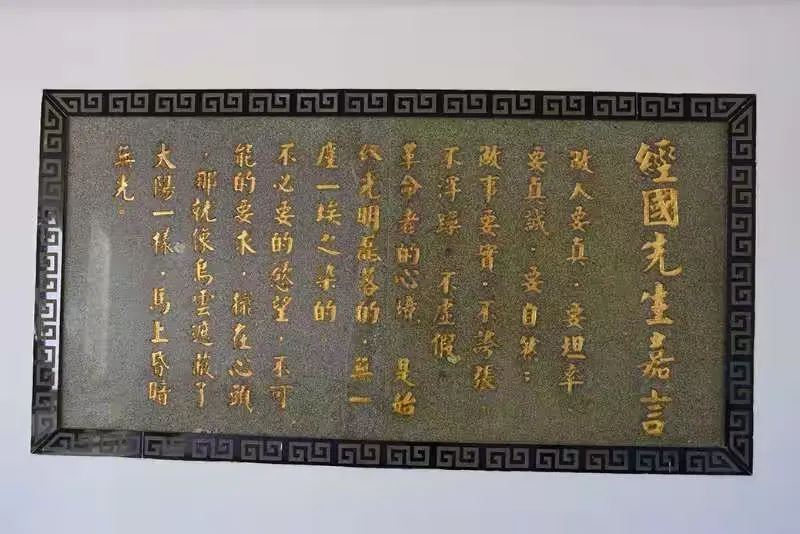 經國先生嘉言
做人要真,要坦率
要真誠,要自然;
做事要實,不誇張
不浮躁,不虛假
革命者的心境 是始
終光明磊落的,無一
塵一埃之染的
不必要的慾望,不可
能的要求,擺在心頭
,那就像烏雲遮蔽了
太陽一樣,馬上昏暗
無光。